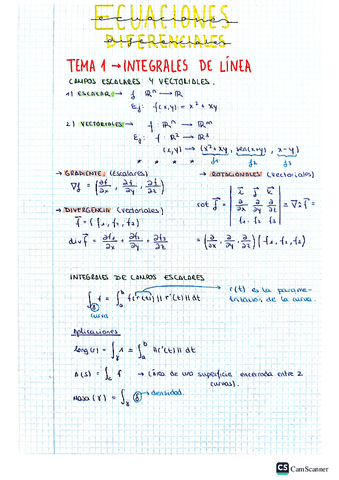 ECUACIONES
DIFERENCIALES
TEMA 1 → INTEGRALES DE LÍNEA
CAMPOS ESCALARES Y VECTORIALES.
1) ESCALAR → f ℝⁿ → ℝ
Ej: f(x,y) = x² + xy
2) VECTORIALES → f ℝⁿ → ℝᵐ
Ej: f: ℝ² → ℝ³
(x,y) → (x²+xy, sen(x+y), x-y)
f₁ f₂ f₃
→ GRADIENTE (escalares)
∇f = (∂f/∂x, ∂f/∂y, ∂f/∂z)
→ DIVERGENCIA (vectoriales)
f⃗ = (f₁, f₂, f₃)
div f⃗ = ∂f₁/∂x + ∂f₂/∂y + ∂f₃/∂z
→ ROTACIONALES (vectoriales)
rot f⃗ = | i⃗ j⃗ k⃗ |
| ∂/∂x ∂/∂y ∂/∂z | =
| f₁ f₂ f₃ |
= (∂/∂x, ∂/∂y, ∂/∂z)
INTEGRALES DE CAMPOS ESCALARES
∫ f = ∫ₐᵇ f(r(t)) ||r'(t)|| dt
curva
r(t) es la parame-
trización de la curva.
Aplicaciones
long(γ) = ∫ᵧ 1 = ∫ₐᵇ ||r'(t)|| dt
A(S) = ∫ f → (Área de una superficie encerrada entre 2
curvas).
Masa (γ) = ∫ᵧ → densidad.
CS CamScanner